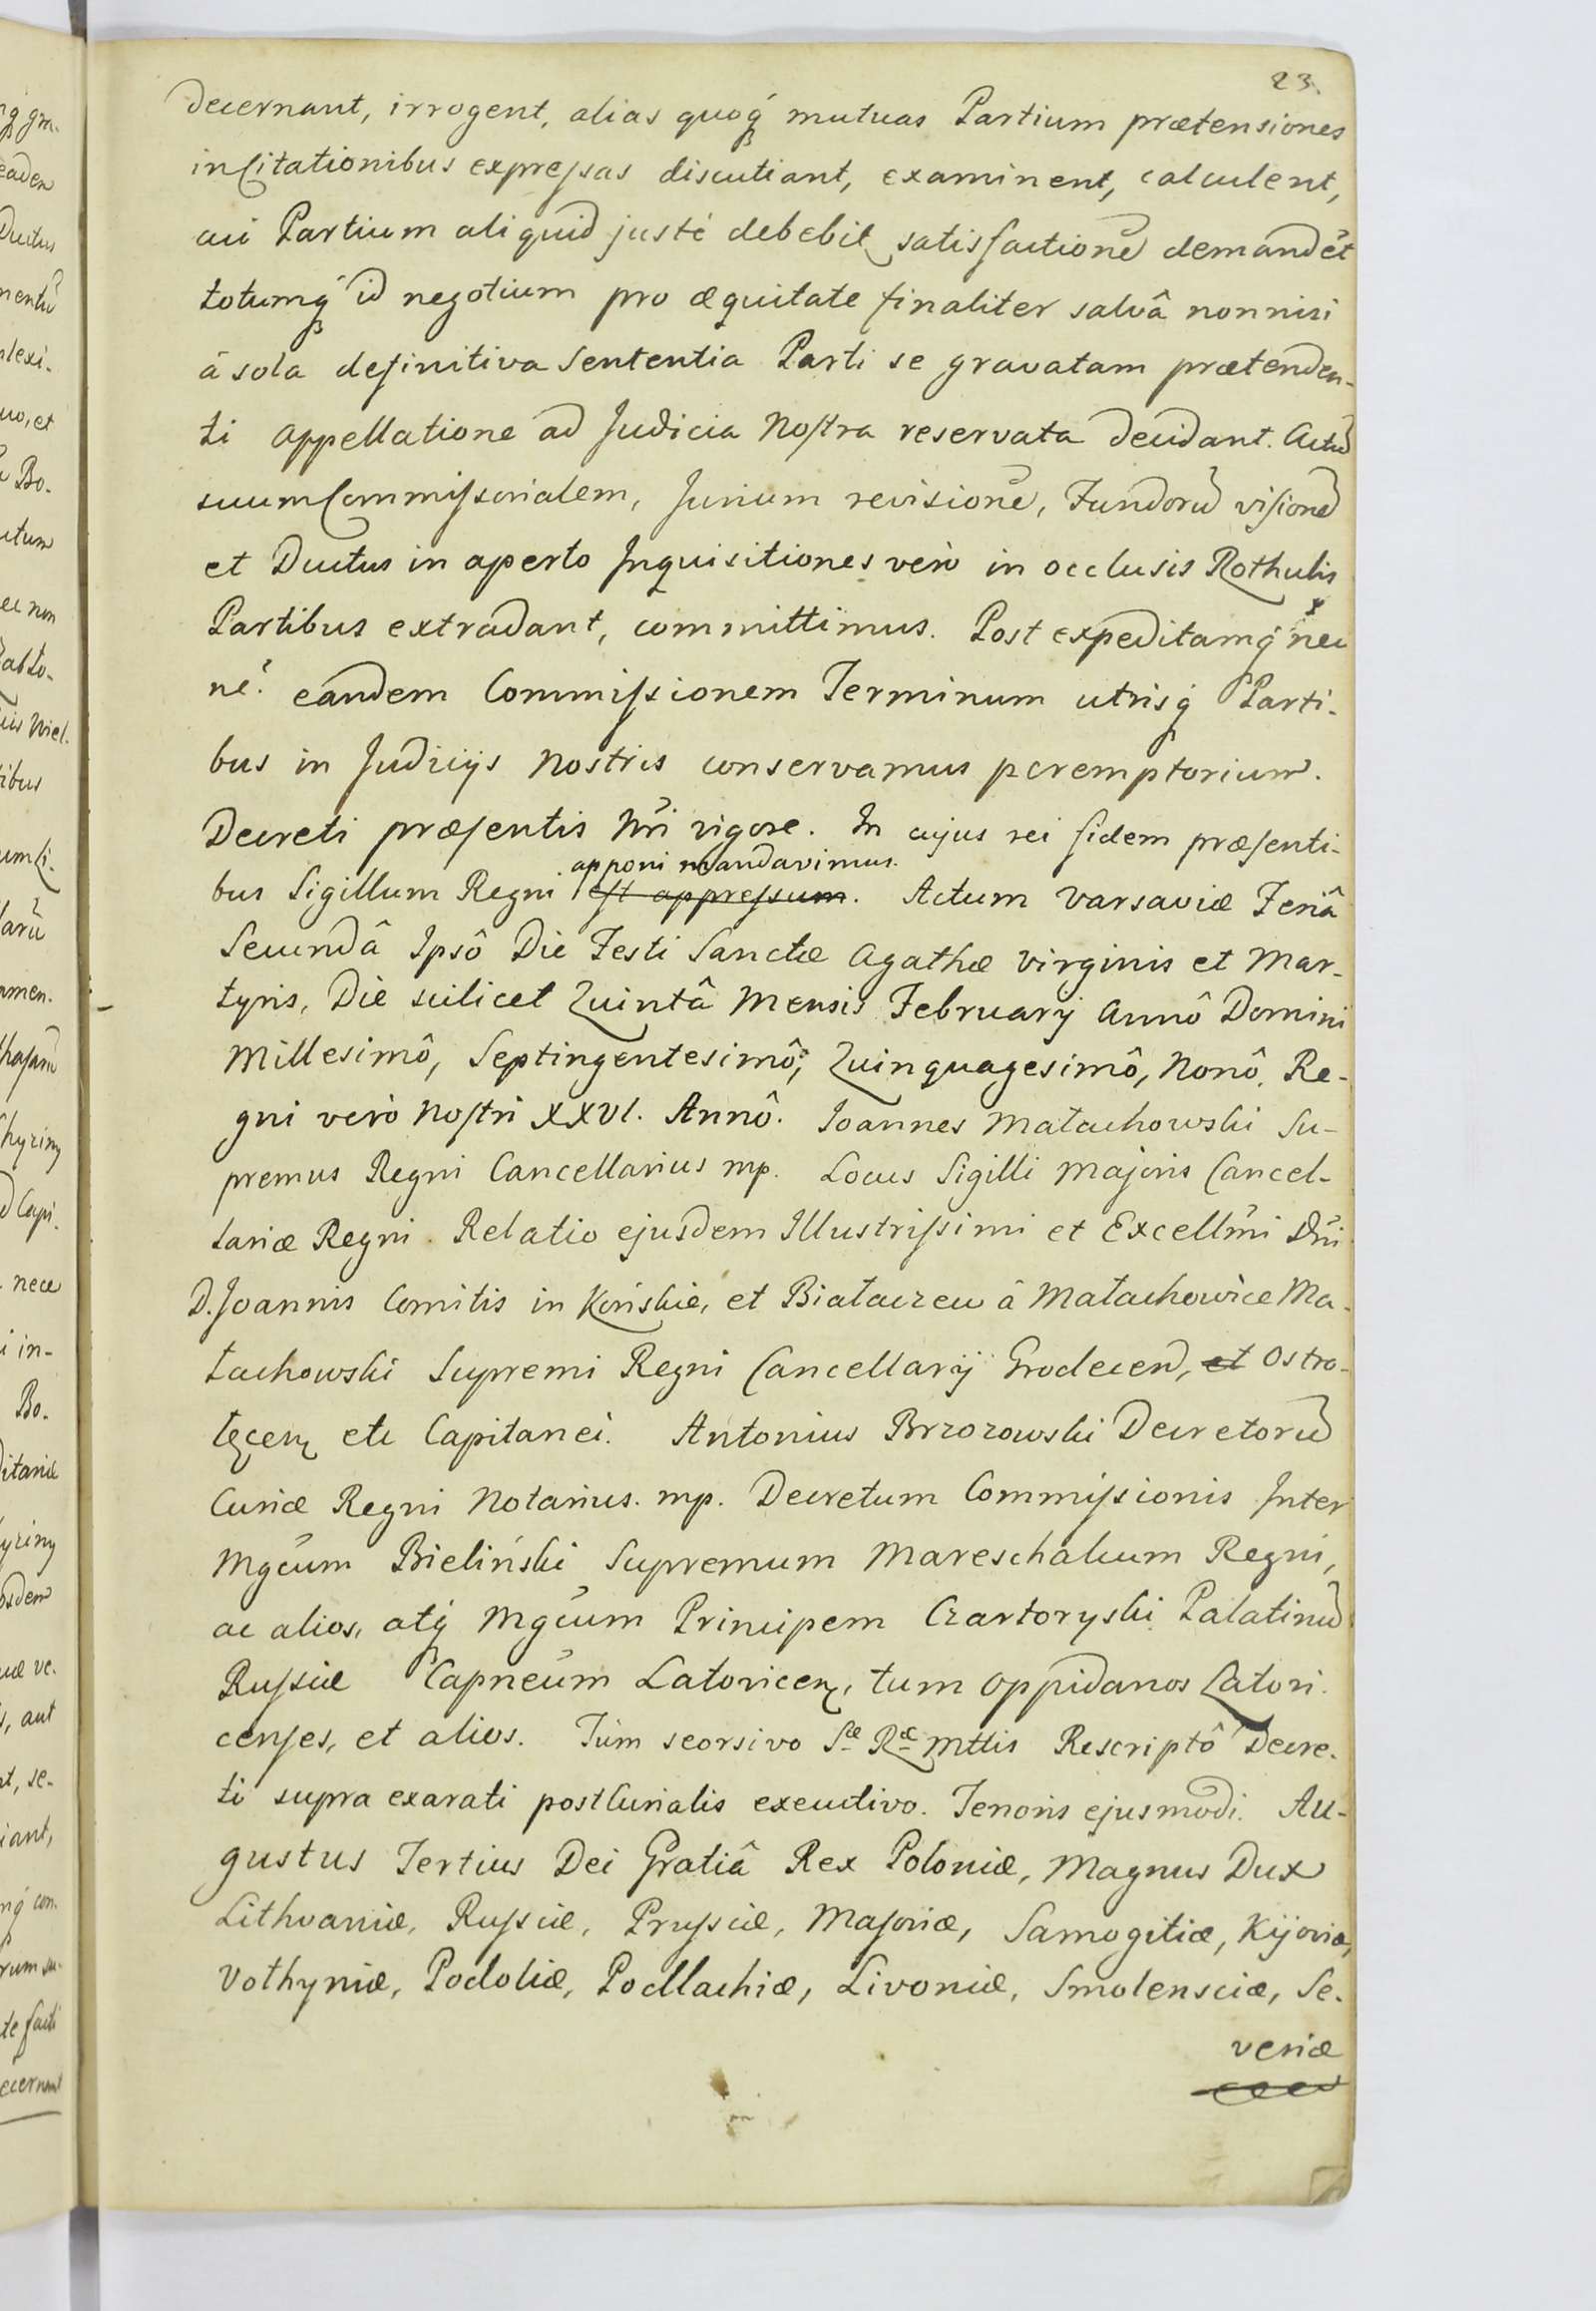 23.
decernant, irrogent, alias quoq́ mutuas Partium prætensiones
in Citationibus expreſsas discutiant, examinent, calculent,
cui Partium aliquid justè debebit satisfactionē demandēt
totumq́ id negotium pro æquitate finaliter salvâ nonnisi
â sola definitiva Sententia Parti se gravatam prætenden-
ti Appellatione ad Judicia Noſtra reservata decidant. Actū
suum Commiſsorialem, Jurium revisionē, Fundorū viſionē
et Ductus in aperto Inquisitiones verò in occlusis Rothulis
Partibus extradant, committimus. Post expeditamq́ nec
nè. eandem Commiſsionem Terminum utrisq́ Parti-
bus in Judicijs Nostris conservamus peremptorium.
Decreti præſentis Nr̃i vigore. In cujus rei fidem præſenti-
apponi mandavimus.
bus Sigillum Regni eſt appreſsum. Actum Varsaviæ Feriâ
Secundâ Ipsô Die Festi Sanctæ Agathæ Virginis et Mar-
tyris, Die scilicet Quintâ Mensis Februarij Annô Domini
Millesimô, Septingentesimô, Quinquagesimô, Nonô, Re-
gni verò Noſtri XXVI. Annô. Joannes Małachowski Su-
premus Regni Cancellarius mp. Locus Sigilli Majoris Cancel-
lariæ Regni. Relatio ejusdem Illustriſsimi et Excellm̃i Dñi
D. Joannis Comitis in Końskie, et Białaczew â Małachowice Ma-
łachowski Supremi Regni Cancellarij Grodecen, et Ostro-
łęcen etc Capitanei. Antonius Brzozowski Decretorū
Curiæ Regni Notarius. mp. Decretum Commiſsionis Inter
Mgc̃um Bieliński Supremum Mareschalcum Regni,
ac alios, atq́ Mgc̃um Principem Czartoryski Palatinū
Ruſsiæ Capnēum Latovicen, tum Oppidanos Latovi-
cenſes, et alios. Tùm seorsivo Sæ Ræ Mttis Rescriptô Decre-
ti supra exarati postCurialis executivo. Tenoris ejusmodi. Au-
gustus Tertius Dei Gratiâ Rex Poloniæ, Magnus Dux
Lithvaniæ, Ruſsiæ, Pruſsiæ, Maſoviæ, Samogitiæ, Kijoviæ,
Vołhyniæ, Podoliæ, Podlachiæ, Livoniæ, Smolensciæ, Se-
veriæ